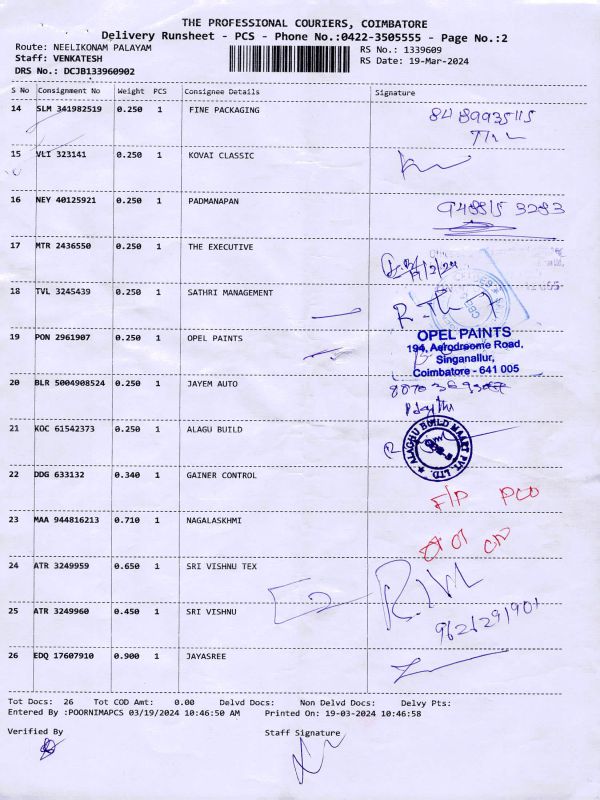 THE PROFESSIONAL COURIERS, COIMBATORE
Delivery Runsheet - PCS - Phone No.:0422-3505555 - Page No.:2
Route: NEELIKONAM PALAYAM
RS No.: 1339609
Staff: VENKATESH
RS Date: 19-Mar-2024
DRS No.: DCJB133960902
S No Consignment No Weight PCS Consignee Details Signature
14 SLM 341982519 0.250 1 FINE PACKAGING
15 VLI 323141 0.250 1 KOVAI CLASSIC
16 NEY 40125921 0.250 1 PADMANAPAN
17 MTR 2436550 0.250 1 THE EXECUTIVE
18 TVL 3245439 0.250 1 SATHRI MANAGEMENT
19 PON 2961907 0.250 1 OPEL PAINTS
OPEL PAINTS
194, Aerodrome Road,
Singanallur,
Coimbatore - 641 005
20 BLR 5004908524 0.250 1 JAYEM AUTO
21 KOC 61542373 0.250 1 ALAGU BUILD
ALAGHU BUILD MAART PVT. LTD.
22 DDG 633132 0.340 1 GAINER CONTROL
23 MAA 944816213 0.710 1 NAGALASKHMI
24 ATR 3249959 0.650 1 SRI VISHNU TEX
25 ATR 3249960 0.450 1 SRI VISHNU
26 EDQ 17607910 0.900 1 JAYASREE
Tot Docs: 26 Tot COD Amt: 0.00 Delvd Docs: Non Delvd Docs: Delvy Pts:
Entered By :POORNIMAPCS 03/19/2024 10:46:50 AM Printed On: 19-03-2024 10:46:58
Verified By Staff Signature